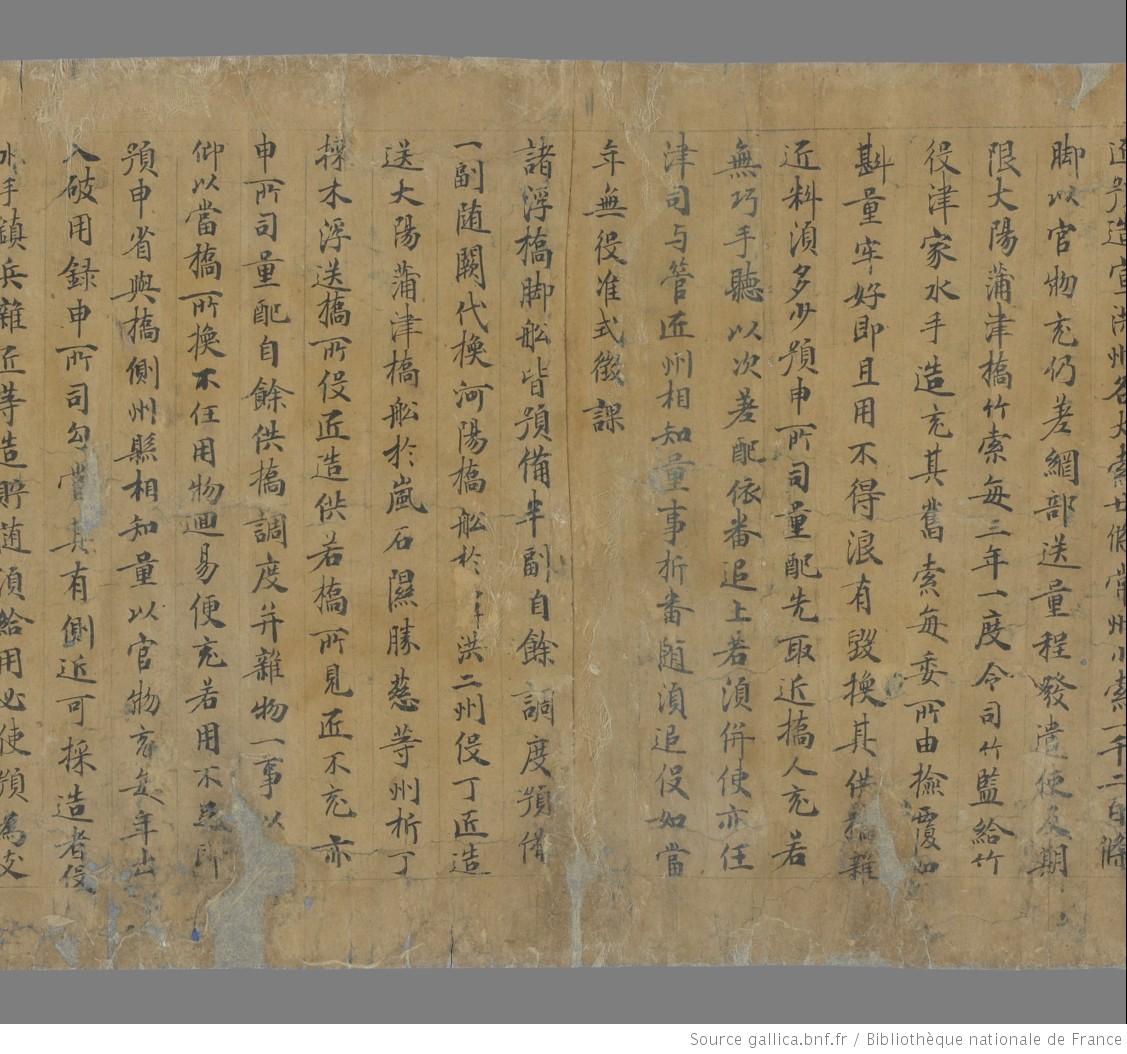 近預造宣洪州各大索廿條常州小索一千二百條
脚以官物充仍差綱部送量程發遣使及期
限大陽蒲津橋竹索每三年一度令司竹監給竹
役津家水手造充其舊索每委所由檢覆如
斟量牢好即且用不得浪有毀換其供橋雜
近料湏多少預申所司量配先取近橋人充若
無巧手聽以次差配依番追上若湏併使亦任
津司与管匠州相知量事折番随湏追役如當
年無役准式徵課
諸浮橋脚舩皆預備半副自餘調度預備
一副随闕代換河陽橋舩於洪二州役丁匠造
送大陽蒲津橋舩於嵐石隰勝慈等州折丁
採木浮送橋所役匠造供若橋所見匠不充亦
申所司量配自餘供橋調度并雜物一事以
仰以當橋所換不任用物迴易便充若用不足即
預申省與橋側州縣相知量以官物充每年出
入破用録申所司勾當其有側近可採造者役
水手鎮兵雜匠等造貯随湏給用必使預為支
Source gallica.bnf.fr / Bibliothèque nationale de France